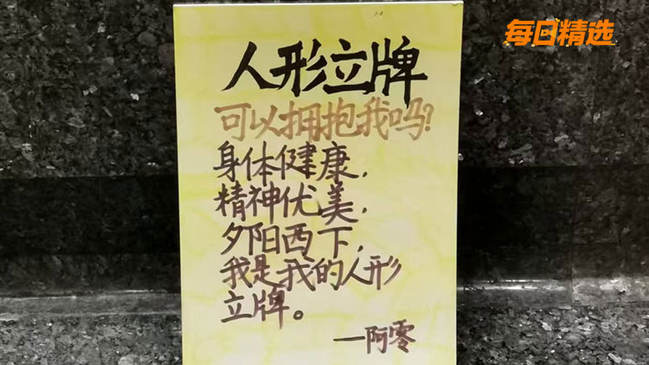 每日精选
人形立牌
可以拥抱我吗?
身体健康,
精神优美,
夕阳西下,
我是我的人形
立牌。
—阿零